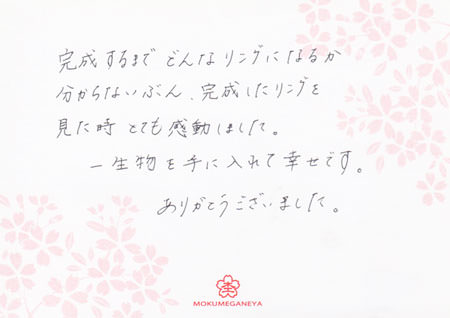 完成するまで どんなリングになるか
分からないぶん、完成したリングを
見た時 とても感動しました。
一生物を手に入れて幸せです。
ありがとうございました。
MOKUMEGANEYA